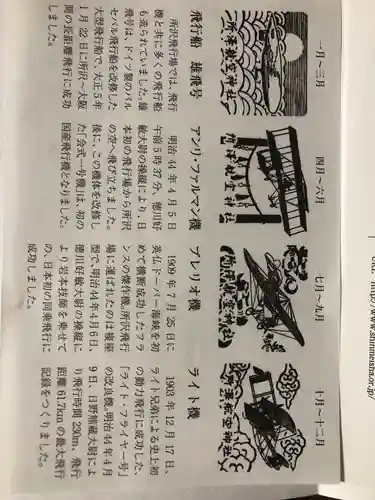 一月〜三月
所澤航空神社
飛行船 雄飛号
所沢飛行場では、飛行
機と共に多くの飛行船
も造られていました。雄
飛号は、ドイツ製のパル
セバル飛行船を改修した
大型飛行船で、大正5年
1月22日に所沢〜大阪
間の長距離飛行に成功
しました。
四月〜六月
所澤航空神社
アンリ・ファルマン機
明治44年4月5日
午前5時37分、徳川好
敏大尉の操縦により日
本初の飛行場から所沢
の空へ飛び立ちました。
後に、この機体を改修し
た「会式一号機」は、初の
国産飛行機となりました。
七月〜九月
所澤航空神社
ブレリオ機
1909年7月25日に
英仏ドーバー海峡を初
めて横断成功したフラ
ンスの傑作機。所沢飛行
場に運ばれたのは複座
型で、明治44年4月6日、
徳川好敏大尉の操縦に
より岩本技師を乗せて
の、日本初の同乗飛行に
成功しました。
十月〜十二月
所澤航空神社
ライト機
1903年12月17日、
ライト兄弟による史上初
の動力飛行に成功した、
「ライト・フライヤー号」
の改良機。明治44年4月
9日、日野熊蔵大尉によ
り飛行時間230m、飛行
距離61.7kmの最大飛行
記録をつくりました。
www.shinmeisha.or.jp/